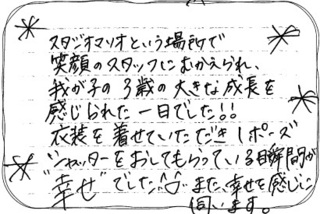 スタジオマリオという場所で
笑顔のスタッフにむかえられ、
我が子の3歳の大きな成長を
感じられた一日でした!!
衣装を着せていただき1ポーズ
シャッターをおしてもらっている瞬間が
"幸せ"でした♡♡また幸せを感じに
伺います。